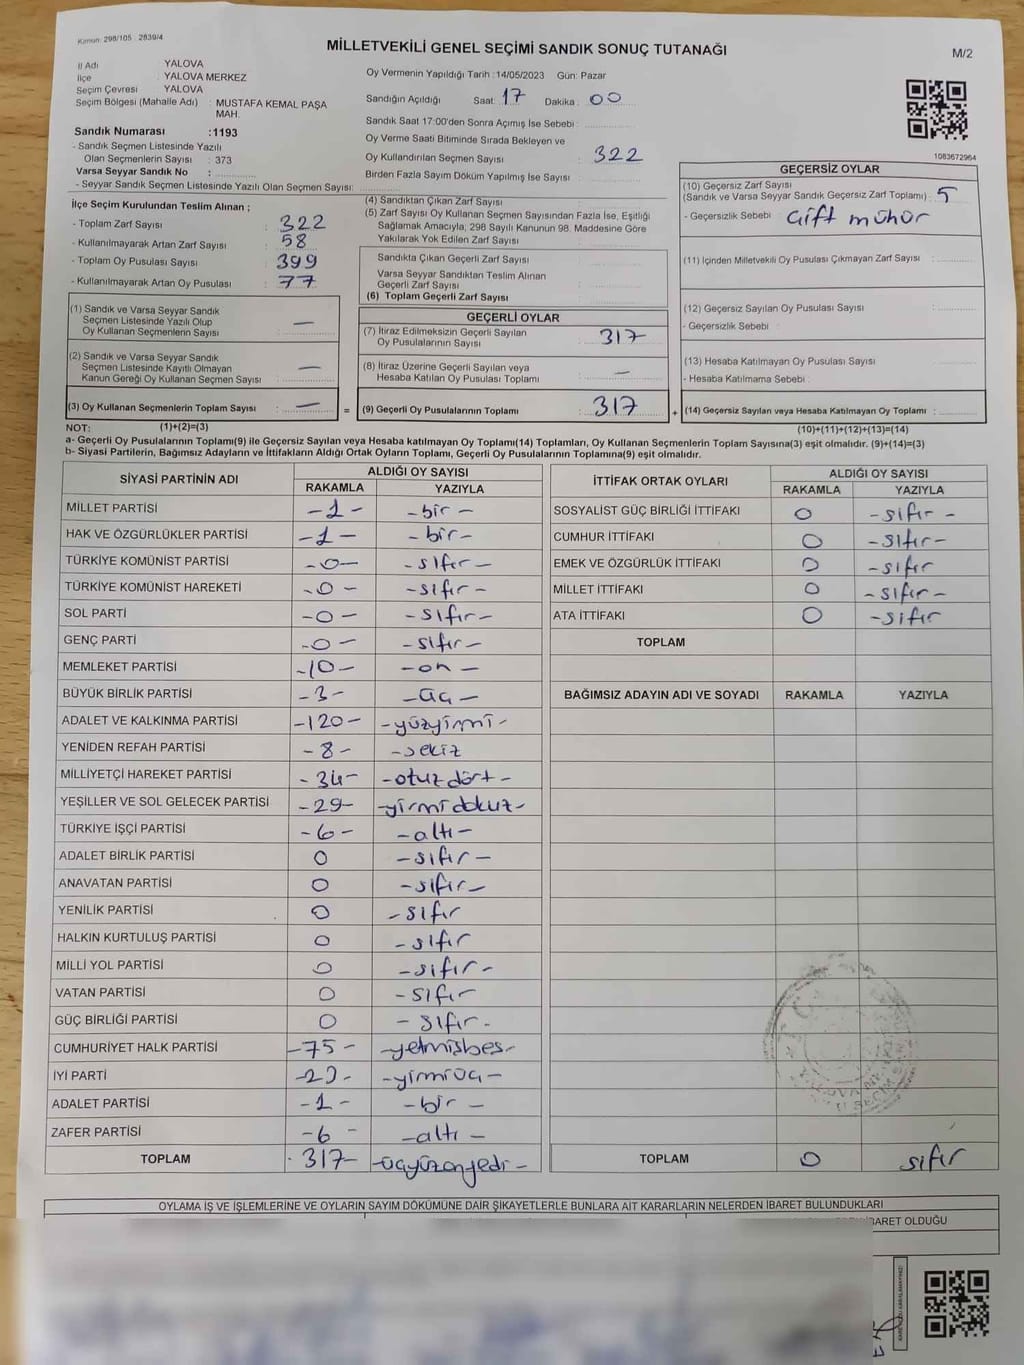 Kanun: 298/105 2839/4
MİLLETVEKİLİ GENEL SEÇİMİ SANDIK SONUÇ TUTANAĞI
M/2
İl Adı YALOVA
İlçe YALOVA MERKEZ
Seçim Çevresi YALOVA
Seçim Bölgesi (Mahalle Adı) : MUSTAFA KEMAL PAŞA MAH.
Sandık Numarası :1193
- Sandık Seçmen Listesinde Yazılı
Olan Seçmenlerin Sayısı : 373
Varsa Seyyar Sandık No :
- Seyyar Sandık Seçmen Listesinde Yazılı Olan Seçmen Sayısı:
Oy Vermenin Yapıldığı Tarih :14/05/2023 Gün: Pazar
Sandığın Açıldığı Saat: 17 Dakika : 00
Sandık Saat 17:00'den Sonra Açımış İse Sebebi :
Oy Verme Saati Bitiminde Sırada Bekleyen ve
Oy Kullandırılan Seçmen Sayısı : 322
Birden Fazla Sayım Döküm Yapılmış İse Sayısı :
1083672964
İlçe Seçim Kurulundan Teslim Alınan ;
- Toplam Zarf Sayısı : 322
- Kullanılmayarak Artan Zarf Sayısı : 58
- Toplam Oy Pusulası Sayısı : 399
- Kullanılmayarak Artan Oy Pusulası : 77
(1) Sandık ve Varsa Seyyar Sandık
Seçmen Listesinde Yazılı Olup
Oy Kullanan Seçmenlerin Sayısı : —
(2) Sandık ve Varsa Seyyar Sandık
Seçmen Listesinde Kayıtlı Olmayan
Kanun Gereği Oy Kullanan Seçmen Sayısı : —
(3) Oy Kullanan Seçmenlerin Toplam Sayısı : —
(4) Sandıktan Çıkan Zarf Sayısı :
(5) Zarf Sayısı Oy Kullanan Seçmen Sayısından Fazla İse, Eşitliği
Sağlamak Amacıyla, 298 Sayılı Kanunun 98. Maddesine Göre
Yakılarak Yok Edilen Zarf Sayısı :
Sandıkta Çıkan Geçerli Zarf Sayısı :
Varsa Seyyar Sandıktan Teslim Alınan
Geçerli Zarf Sayısı :
(6) Toplam Geçerli Zarf Sayısı :
GEÇERLİ OYLAR
(7) İtiraz Edilmeksizin Geçerli Sayılan
Oy Pusulalarının Sayısı : 317
(8) İtiraz Üzerine Geçerli Sayılan veya
Hesaba Katılan Oy Pusulası Toplamı : —
= (9) Geçerli Oy Pusulalarının Toplamı : 317 +
GEÇERSİZ OYLAR
(10) Geçersiz Zarf Sayısı
(Sandık ve Varsa Seyyar Sandık Geçersiz Zarf Toplamı) : 5
- Geçersizlik Sebebi : Çift mühür
(11) İçinden Milletvekili Oy Pusulası Çıkmayan Zarf Sayısı :
(12) Geçersiz Sayılan Oy Pusulası Sayısı :
- Geçersizlik Sebebi :
(13) Hesaba Katılmayan Oy Pusulası Sayısı :
- Hesaba Katılmama Sebebi :
(14) Geçersiz Sayılan veya Hesaba Katılmayan Oy Toplamı :
NOT: (1)+(2)=(3)
(10)+(11)+(12)+(13)=(14)
a- Geçerli Oy Pusulalarının Toplamı(9) ile Geçersiz Sayılan veya Hesaba katılmayan Oy Toplamı(14) Toplamları, Oy Kullanan Seçmenlerin Toplam Sayısına(3) eşit olmalıdır. (9)+(14)=(3)
b- Siyasi Partilerin, Bağımsız Adayların ve İttifakların Aldığı Ortak Oyların Toplamı, Geçerli Oy Pusulalarının Toplamına(9) eşit olmalıdır.
SİYASİ PARTİNİN ADI
ALDIĞI OY SAYISI
RAKAMLA YAZIYLA
MİLLET PARTİSİ -1- -bir-
HAK VE ÖZGÜRLÜKLER PARTİSİ -1- -bir-
TÜRKİYE KOMÜNİST PARTİSİ -0- -sıfır-
TÜRKİYE KOMÜNİST HAREKETİ -0- -sıfır-
SOL PARTİ -0- -sıfır-
GENÇ PARTİ -0- -sıfır-
MEMLEKET PARTİSİ -10- -on-
BÜYÜK BİRLİK PARTİSİ -3- -üç-
ADALET VE KALKINMA PARTİSİ -120- -yüzyirmi-
YENİDEN REFAH PARTİSİ -8- -sekiz
MİLLİYETÇİ HAREKET PARTİSİ -34- -otuzdört-
YEŞİLLER VE SOL GELECEK PARTİSİ -29- -yirmidokuz-
TÜRKİYE İŞÇİ PARTİSİ -6- -altı-
ADALET BİRLİK PARTİSİ 0 -sıfır-
ANAVATAN PARTİSİ 0 -sıfır-
YENİLİK PARTİSİ 0 -sıfır
HALKIN KURTULUŞ PARTİSİ 0 -sıfır
MİLLİ YOL PARTİSİ 0 -sıfır-
VATAN PARTİSİ 0 -sıfır-
GÜÇ BİRLİĞİ PARTİSİ 0 -sıfır-
CUMHURİYET HALK PARTİSİ -75- -yetmişbeş-
İYİ PARTİ -23- -yirmiüç-
ADALET PARTİSİ -1- -bir-
ZAFER PARTİSİ -6- -altı-
TOPLAM -317- -üçyüzonyedi-
İTTİFAK ORTAK OYLARI
ALDIĞI OY SAYISI
RAKAMLA YAZIYLA
SOSYALİST GÜÇ BİRLİĞİ İTTİFAKI 0 -sıfır-
CUMHUR İTTİFAKI 0 -sıfır-
EMEK VE ÖZGÜRLÜK İTTİFAKI 0 -sıfır
MİLLET İTTİFAKI 0 -sıfır-
ATA İTTİFAKI 0 -sıfır
TOPLAM
BAĞIMSIZ ADAYIN ADI VE SOYADI RAKAMLA YAZIYLA
TOPLAM 0 sıfır
OYLAMA İŞ VE İŞLEMLERİNE VE OYLARIN SAYIM DÖKÜMÜNE DAİR ŞİKAYETLERLE BUNLARA AİT KARARLARIN NELERDEN İBARET BULUNDUKLARI
İBARET OLDUĞU